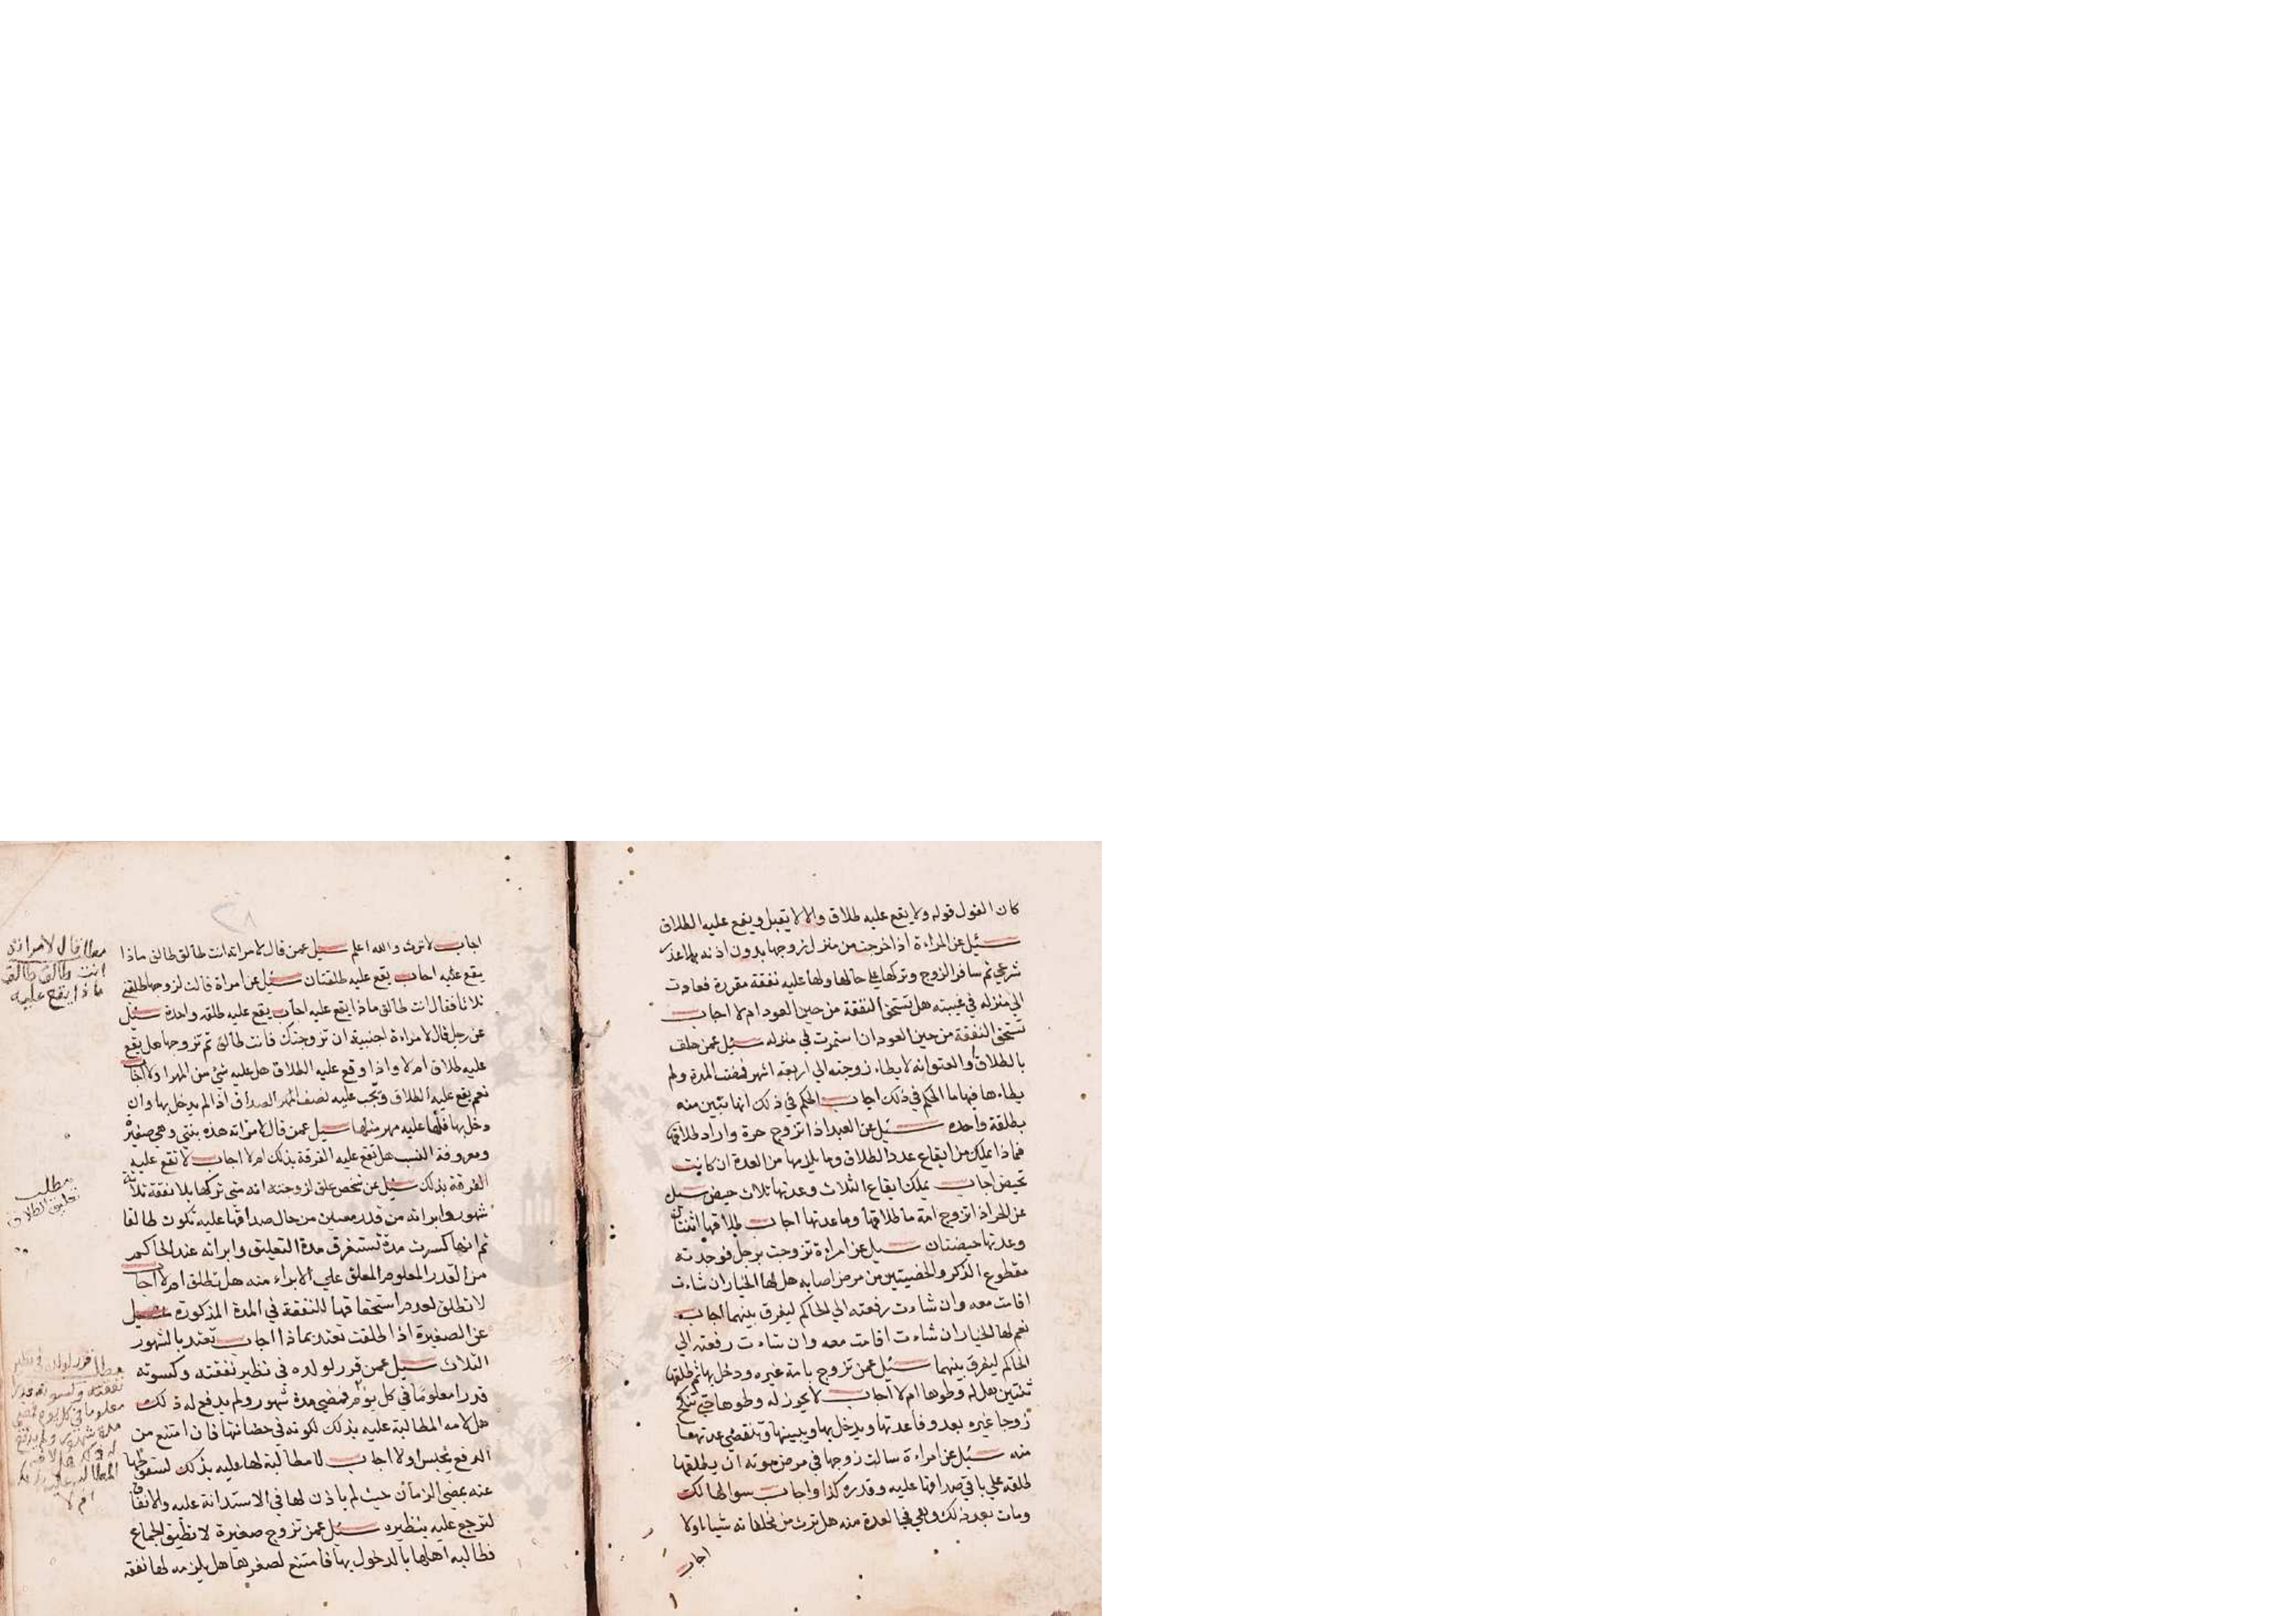 كان القول قوله ولا يقع عليه طلاق والا لا يقبل ويقع عليه الطلاق
سئل عن المراءة اذا خرجت من منزل زوجها بدون اذنه بلا عذر
شرعي ثم سافر الزوج وتركها على حالها ولها عليه نفقة مقررة فعادت
الي منزله في غيبته هل تستحق النفقة من حين العود ام لا اجاب
تستحق النفقة من حين العود ان استمرت في منزله سئل عمن حلف
بالطلاق والعتق انه لا يطاء زوجته الي اربعة اشهر فمضت المدة ولم
يطاءها فيها ما الحكم في ذلك اجاب الحكم في ذلك انها تبين منه
بطلقة واحده سئل عن العبد اذا تزوج حرة واراد طلاقها
فماذا يملك من ايقاع عدد الطلاق وما يلزمها من العدة ان كانت
تحيض اجاب يملك ايقاع الثلاث وعدتها ثلاث حيض سيل
عن الحر اذا تزوج امة ما طلاقها وما عدتها اجاب طلاقها اثنتان
وعدتها حيضتان سيل عن امراءة تزوجت برجل فوجدته
مقطوع الذكر والخصيتين من مرض اصابه هل لها الخيار ان شاءت
اقامت معه وان شاءت رفعته الي الحاكم ليفرق بينهما اجاب
نعم لها الخيار ان شاءت اقامت معه وان شاءت رفعته الي
الحاكم ليفرق بينهما سئل عمن تزوج بامة غيره ودخل بها ثم طلقها
ثنتين هل له وطوها ام لا اجاب لا يجوز له وطوها حتي تنكح
زوجا غيره بعد وفا عدتها ويدخل بها ويبينها وتنقضي عدتها
منه سئل عن امراءة سالت زوجها في مرض موته ان يطلقها
طلقه علي باقي صداقها عليه وقدره كذا واجاب سوالها لذلك
ومات بعد ذلك وهي في العدة منه هل ترث من مخلفاته شيا ام لا
اجاب
اجاب لا ترث والله اعلم سيل عمن قال لامراته انت طالق طالق ماذا
يقع عليه اجاب يقع عليه طلقتان سئل عن امراة قالت لزوجها طلقني
ثلاثا فقال انت طالق ماذا يقع عليه اجاب يقع عليه طلقه واحدة سئل
عن رجل قال لامراءة اجنبية ان تزوجتك فانت طالق ثم تزوجها هل يقع
عليه طلاق ام لا واذا وقع عليه الطلاق هل عليه شي من المهر ام لا اجاب
نعم يقع عليه الطلاق ويجب عليه نصف المهر الصداق اذا لم يدخل بها وان
دخل بها فلها عليه مهر مثلها سيل عمن قال لامراته هذه بنتي وهي صغيرة
ومعروفة النسب هل تقع عليه الفرقة بذلك ام لا اجاب لا تقع عليه
الفرقة بذلك سيل عن شخص علق لزوجته انه متي تركها بلا نفقة ثلاثة
شهور وابراته من قدر معين من حال صداقها عليه تكون طالقا
ثم انها كسرت مدة تستغرق مدة التعليق وابراته عند الحاكم
من القدر المعلوم المعلق علي الابراء منه هل تطلق ام لا اجاب
لا تطلق لعدم استحقاقها للنفقة في المدة المذكورة سيل
عن الصغيرة اذا طلقت تعتد بماذا اجاب تعتد بالشهور
الثلاث سيل عمن قرر لولده في نظير نفقته وكسوته
قدرا معلوما في كل يوم فمضي مدة شهور ولم يدفع له ذلك
هل لامه المطالبة عليه بذلك لكونه في حضانتها فان امتنع من
الدفع يحبس او لا اجاب لا مطالبة لها عليه بذلك لسقوطها
عنه بمضي الزمان حيث لم ياذن لها في الاستدانة عليه والانفاق
لترجع عليه بنظيره سئل عمن تزوج صغيرة لا تطيق الجماع
فطالبه اهلها بالدخول بها فامتنع لصغرها هل يلزمه لها نفقه
مطلب قال لامراته
انت طالق طالق
ماذا يقع عليه
مطلب
تعليق الطلاق
مطلب قرر لولده في نظير
نفقته وكسوته قدرا
معلوما في كل يوم فمضي
مدة شهور ولم يدفع
له ذلك هل لامه
المطالبة عليه بذلك
ام لا